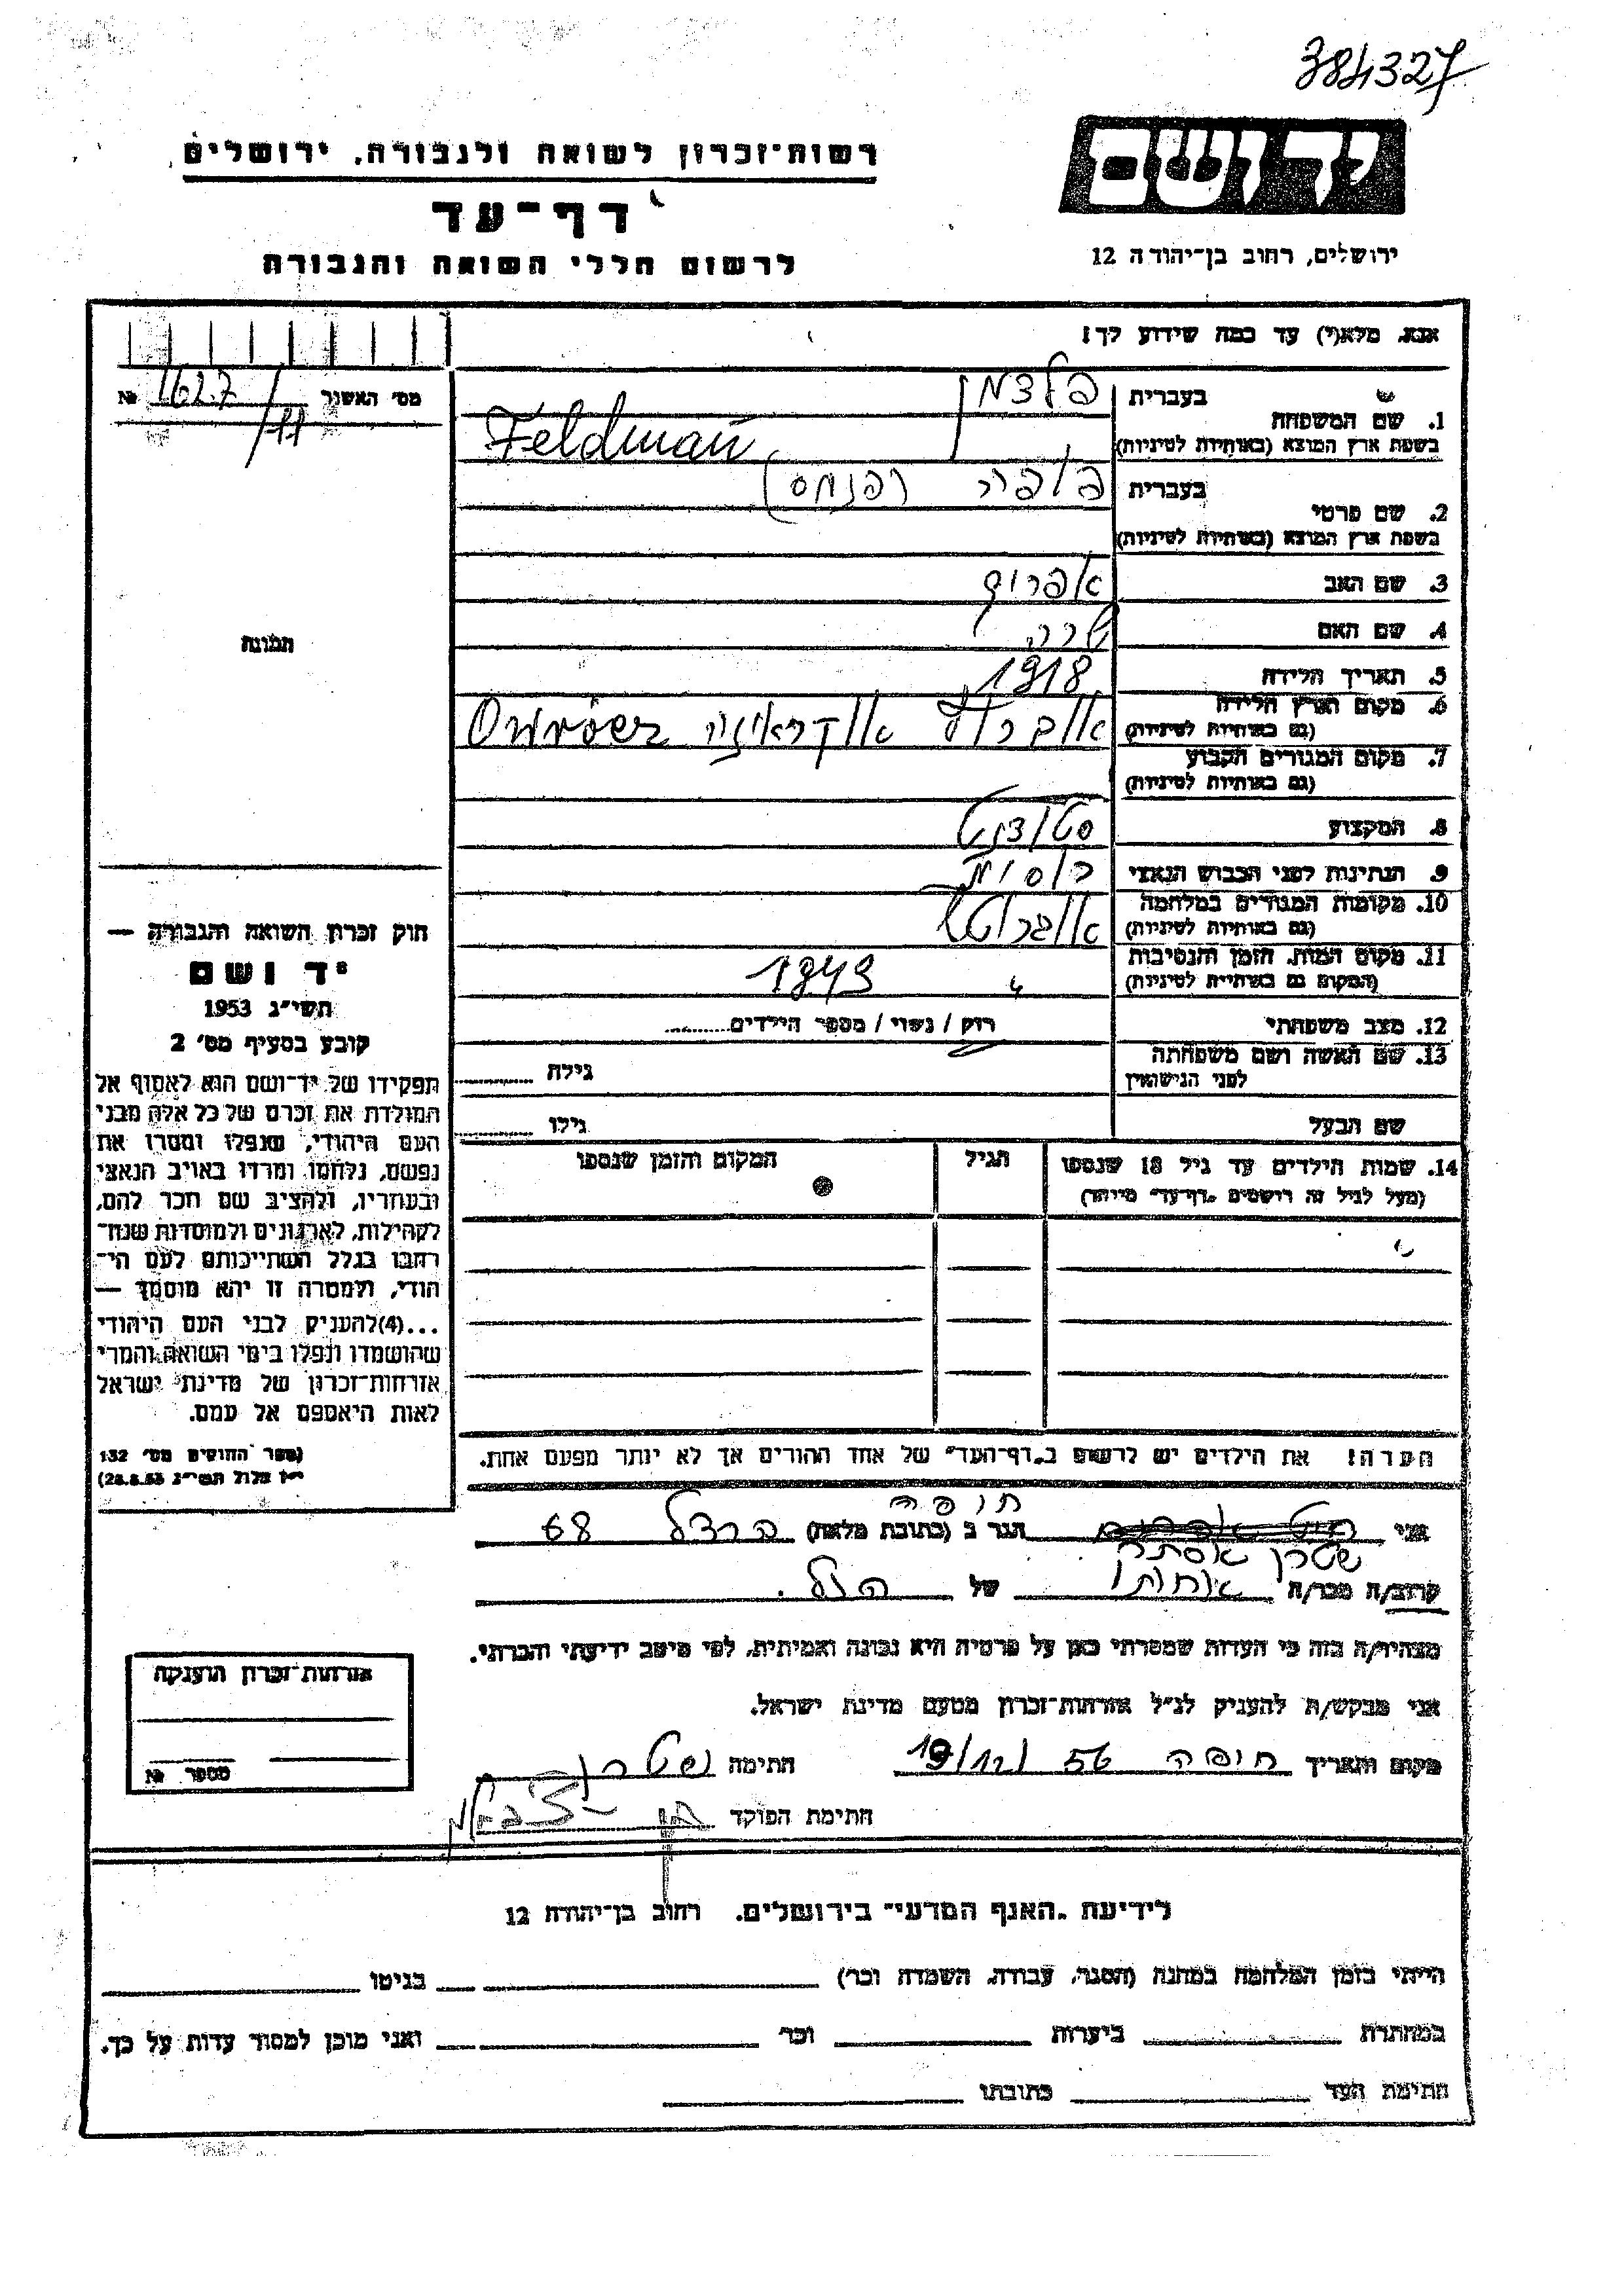 384327
יד ושם
ירושלים, רחוב בן־יהודה 12
רשות־זכרון לשואה ולגבורה, ירושלים
דף־עד
לרשום חללי השואה והגבורה
אנא, מלא(י) עד כמה שידוע לך!
מס' האשור 1627/ № 
1. שם המשפחה בעברית פלדמן
בשפת ארץ המוצא (באותיות לטיניות) Feldman
2. שם פרטי בעברית (פנחס)
בשפת ארץ המוצא (באותיות לטיניות)
3. שם האב אפרים
4. שם האם שרה
5. תאריך הלידה 1918
6. מקום וארץ הלידה
(גם באותיות לטיניות)
7. מקום המגורים הקבוע
(גם באותיות לטיניות)
8. המקצוע סטודנט
9. הנתינות לפני הכבוש הנאצי רוסית
10. מקומות המגורים במלחמה
(גם באותיות לטיניות)
11. מקום המות, הזמן והנסיבות 1943
(המקום גם באותיות לטיניות)
12. מצב משפחתי רוק / נשוי / מספר הילדים
13. שם האשה ושם משפחתה גילה
לפני הנישואין
שם הבעל גילו
14. שמות הילדים עד גיל 18 שנספו הגיל המקום והזמן שנספו
(מעל לגיל זה רושמים „דף־עד" מיוחד)
הערה! את הילדים יש לרשום ב„דף־העד" של אחד ההורים אך לא יותר מפעם אחת.
תמונה
חוק זכרון השואה והגבורה —
יד ושם
תשי"ג 1953
קובע בסעיף מס' 2
תפקידו של יד־ושם הוא לאסוף אל
המולדת את זכרם של כל אלה מבני
העם היהודי, שנפלו ומסרו את
נפשם, נלחמו ומרדו באויב הנאצי
ובעוזריו, ולהציב שם וזכר להם,
לקהילות, לארגונים ולמוסדות שנח־
רבו בגלל השתייכותם לעם הי־
הודי, ולמטרה זו יהא מוסמך —
...(4)להעניק לבני העם היהודי
שהושמדו ונפלו בימי השואה והמרי
אזרחות־זכרון של מדינת ישראל
לאות היאספם אל עמם.
(ספר החוקים מס' 132
י"ז אלול תשי"ג 28.8.53)
חיפה
אני הגר ב (כתובת מלאה) הרצל 68
שטרן אסתר
קרוב/ה מכר/ה אחותו של הנ"ל.
מצהיר/ה בזה כי העדות שמסרתי כאן על פרטיה היא נכונה ואמיתית, לפי מיטב ידיעתי והכרתי.
אני מבקש/ת להעניק לנ"ל אזרחות־זכרון מטעם מדינת ישראל.
מקום ותאריך חיפה 19/12/56 חתימה שטרן
חתימת הפוקד
אזרחות־זכרון הוענקה
מספר №
לידיעת „האגף המדעי" בירושלים, רחוב בן־יהודה 12
הייתי בזמן המלחמה במחנה (הסגר, עבודה, השמדה וכו') בגיטו
במחתרת ביערות וכו' ואני מוכן למסור עדות על כך.
חתימת העד כתובתו